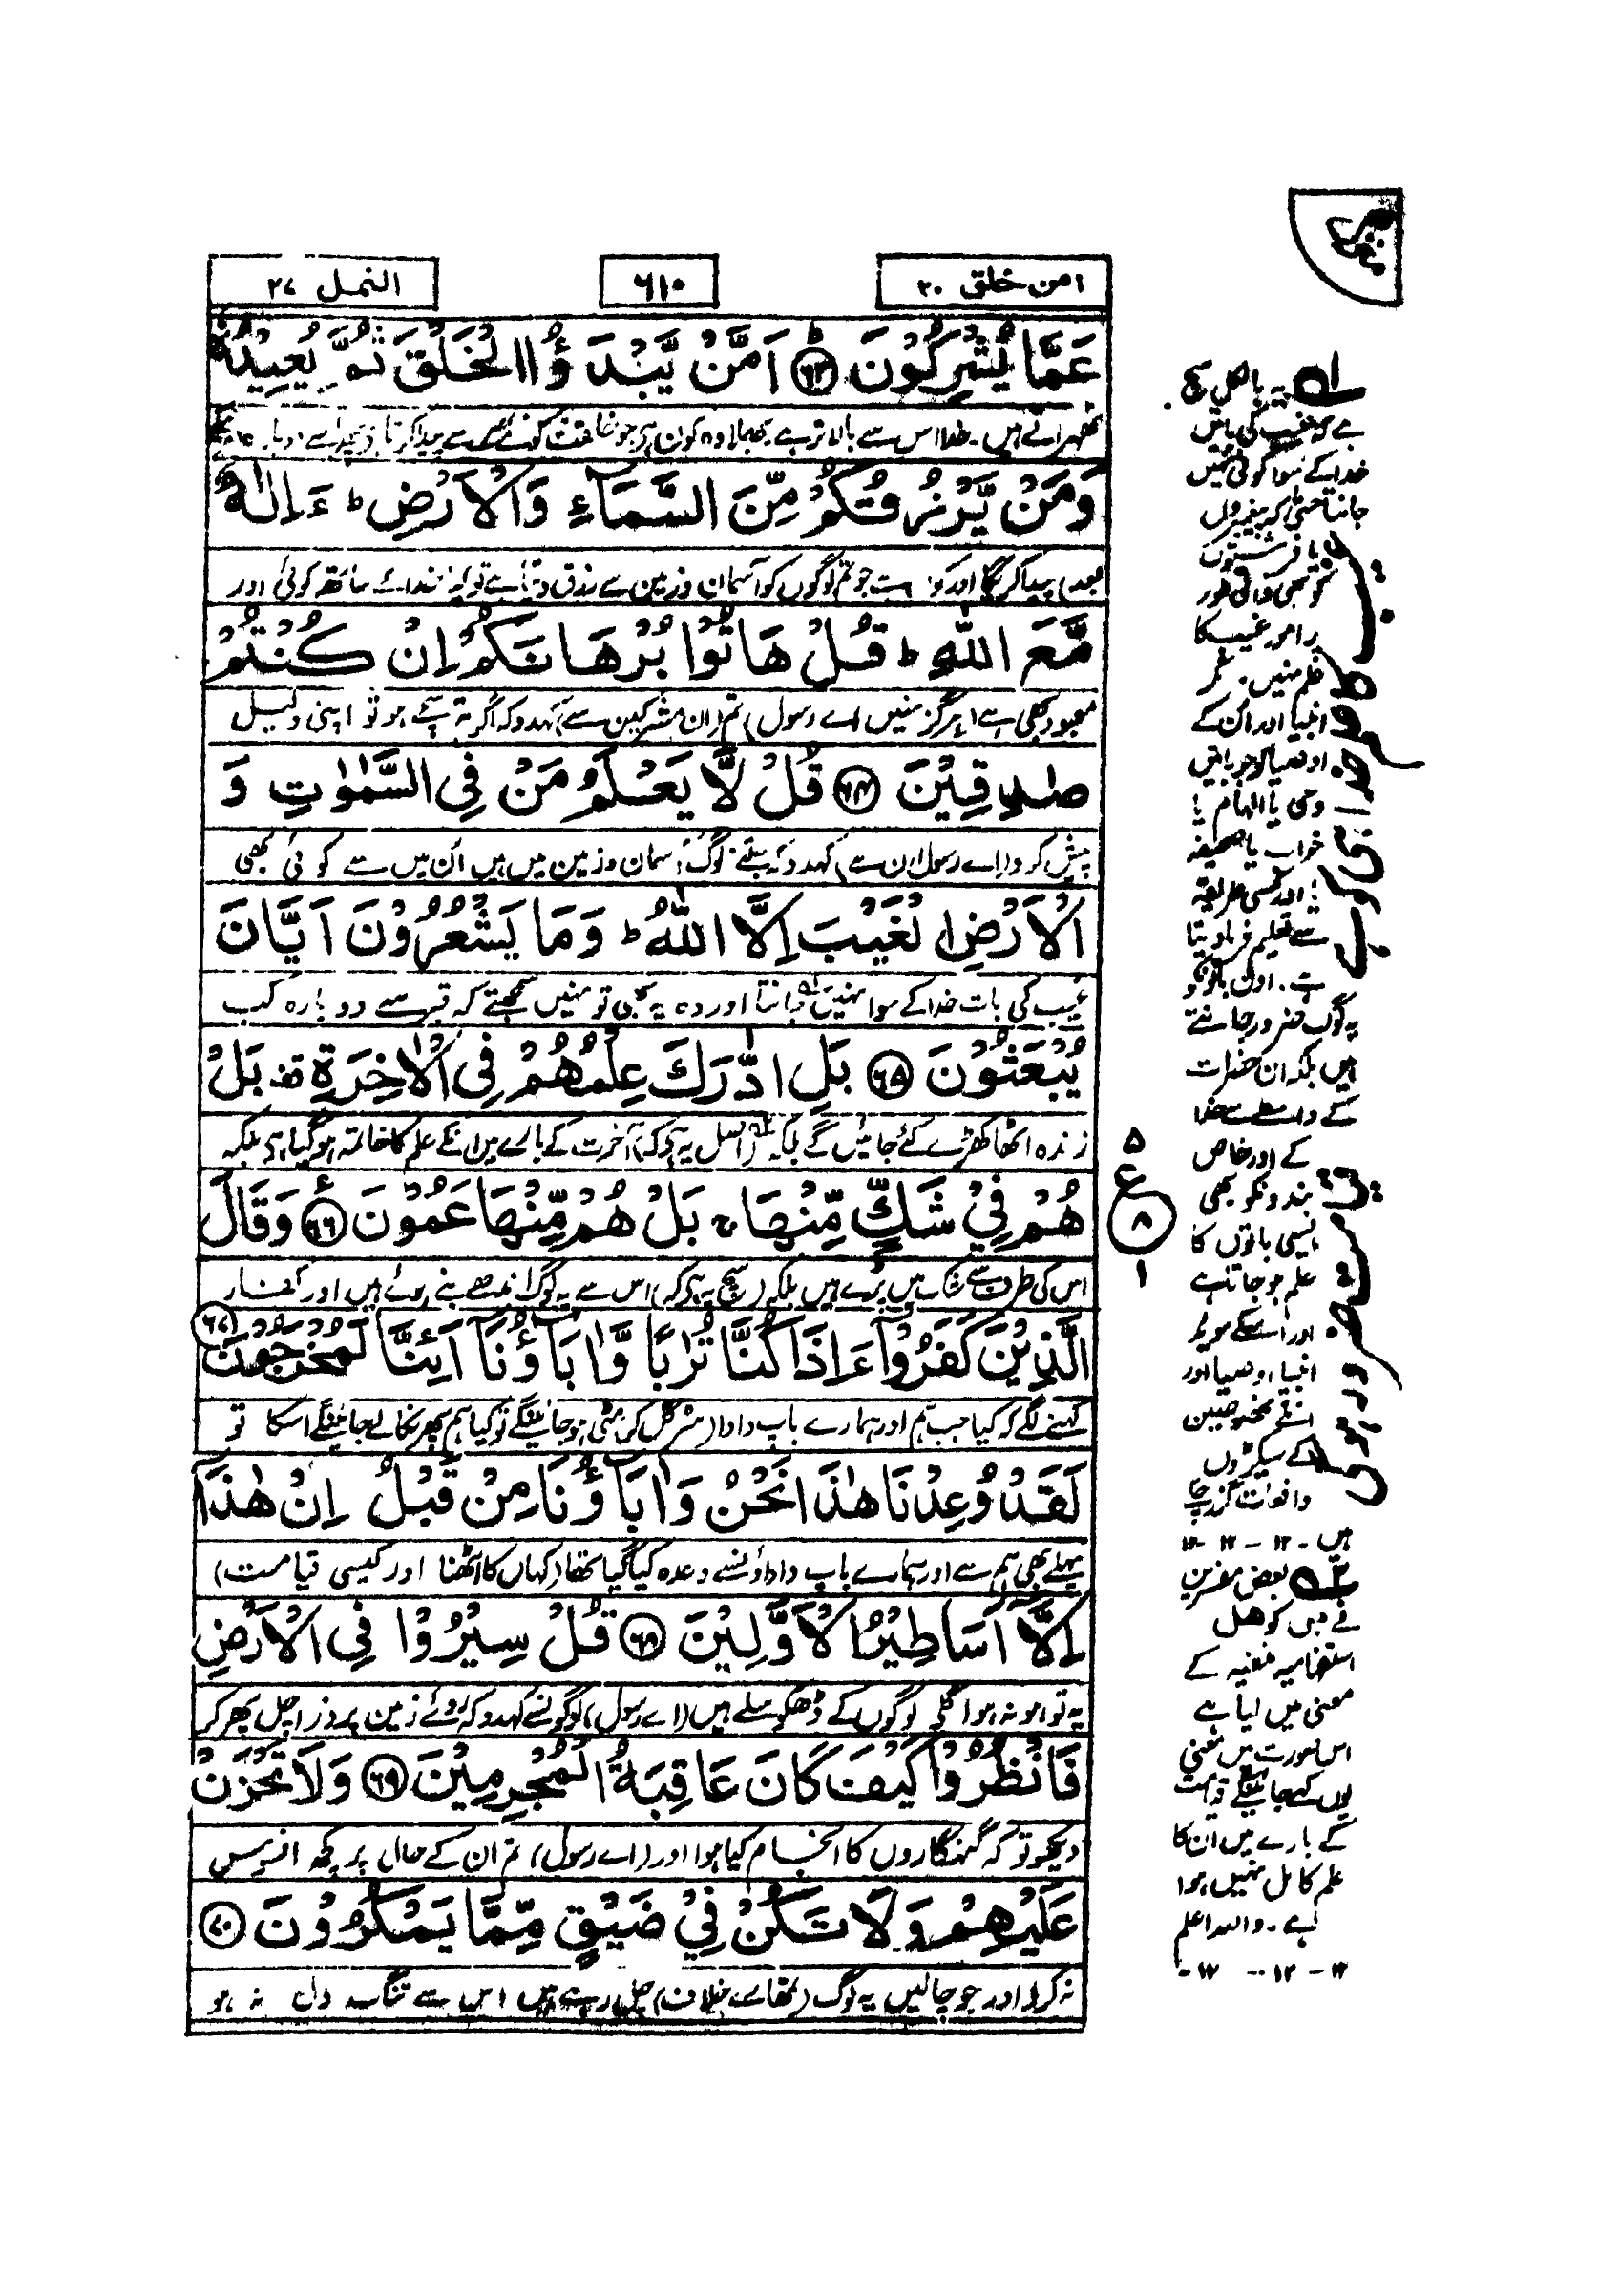 امن خلق ۲۰
۶۱۰
النمل ۲۷
عَمَّا يُشْرِكُوْنَ ۶۳ اَمَّنْ يَّبْدَؤُا الْخَلْقَ ثُمَّ يُعِيْدُهٗ
ٹھہراتے ہیں۔ خدا اس سے بالا تر ہے بھلا وہ کون ہے جو خلقت کو نئے سرے سے پیدا کرتا
وَمَنْ يَّرْزُقُكُمْ مِّنَ السَّمَآءِ وَالْاَرْضِ ط ءَاِلٰهٌ
پیدا کریگا اور کون ہے جو تم لوگوں کو آسمان و زمین سے رزق دیتا ہے تو کیا خدا کے ساتھ کوئی اور
مَّعَ اللّٰهِ ط قُلْ هَاتُوْا بُرْهَانَكُمْ اِنْ كُنْتُمْ
معبود بھی ہے؟ ہرگز نہیں (اے رسول) تم (ان مشرکین سے) کہدو کہ اگر تم سچے ہو تو اپنی دلیل
صٰدِقِيْنَ ۶۴ قُلْ لَّا يَعْلَمُ مَنْ فِى السَّمٰوٰتِ وَ
پیش کرو (اے رسول ان سے) کہدو کہ جتنے لوگ آسمان و زمین میں ہیں ان میں سے کوئی بھی
الْاَرْضِ الْغَيْبَ اِلَّا اللّٰهُ ط وَمَا يَشْعُرُوْنَ اَيَّانَ
غیب کی بات خدا کے سوا نہیں جانتا اور وہ یہ بھی تو نہیں سمجھتے کہ قبر سے دوبارہ کب
يُبْعَثُوْنَ ۶۵ بَلِ ادّٰرَكَ عِلْمُهُمْ فِى الْاٰخِرَةِ قف بَلْ
زندہ اٹھا کھڑے کئے جائیں گے بلکہ (اصل یہ ہے کہ) آخرت کے بارے میں انکے علم کا خاتمہ ہو گیا ہے بلکہ
هُمْ فِيْ شَكٍّ مِّنْهَا بَلْ هُمْ مِّنْهَا عَمُوْنَ ۶۶ وَقَالَ
اس کی طرف سے شک میں پڑے ہیں بلکہ (سچ یہ ہے کہ) اس سے یہ لوگ اندھے بنے ہوئے ہیں اور کفار
الَّذِيْنَ كَفَرُوْٓا ءَاِذَا كُنَّا تُرَابًا وَّاٰبَآؤُنَآ اَئِنَّا لَمُخْرَجُوْنَ ۶۷
کہنے لگے کہ کیا جب ہم اور ہمارے باپ دادا (سڑ گل کر) مٹی ہو جائینگے تو کیا ہم پھر نکالے جائینگے اسکا تو
لَقَدْ وُعِدْنَا هٰذَا نَحْنُ وَاٰبَآؤُنَا مِنْ قَبْلُ اِنْ هٰذَآ
پہلے بھی ہم سے اور ہمارے باپ داداؤنسے وعدہ کیا گیا تھا (کہاں کا اٹھنا اور کیسی قیامت)
اِلَّآ اَسَاطِيْرُ الْاَوَّلِيْنَ ۶۸ قُلْ سِيْرُوْا فِى الْاَرْضِ
یہ تو ہو نہ ہو اگلے لوگوں کے ڈھکوسلے ہیں (اے رسول) لوگونسے کہدو کہ روئے زمین پر ذرا چل پھر کر
فَانْظُرُوْا كَيْفَ كَانَ عَاقِبَةُ الْمُجْرِمِيْنَ ۶۹ وَلَا تَحْزَنْ
دیکھو تو کہ گنہگاروں کا انجام کیا ہوا اور (اے رسول) تم ان کے حال پر کچھ افسوس
عَلَيْهِمْ وَلَا تَكُنْ فِيْ ضَيْقٍ مِّمَّا يَمْكُرُوْنَ ۷۰
نہ کرو اور جو چالیں یہ لوگ (تمھارے خلاف) چل رہے ہیں اس سے تنگ دل نہ ہو
۵
ع
۸
۱
یہ بالکل سچ
ہے کہ غیب کی باتیں
خدا کے سوا کوئی نہیں
جانتا حتیٰ کہ پیغمبروں
یا فرشتوں
کو بھی ذاتی طور
پر امور غیب کا
علم نہیں۔ مگر
انبیا اور ان کے
اوصیا کو جو باتیں
وحی یا الہام یا
خواب یا صحیفہ
اور کسی طریقہ
سے تعلیم فرما دیتا
ہے۔ اون باتونکو
یہ لوگ ضرور جانتے
ہیں بلکہ ان حضرات
کے واسطے سے خدا
کے اور خاص
بندونکو بھی
ایسی باتوں کا
علم ہو جاتا ہے
اور اسکے موید
انبیا اوصیا اور
انکے مخصوصین
کے سیکڑوں
واقعات گزر چکے
ہیں۔ ۱۲ – ۱۲ – ۱۲
بعض مفسرین
نے بل کو ھل
استفہامیہ نفیہ کے
معنی میں لیا ہے
اس صورت میں معنی
یوں کہے جائینگے قیامت
کے بارے میں ان کا
علم کامل نہیں ہوا
ہے۔ واللہ اعلم
۱۲ – ۱۲ – ۱۲